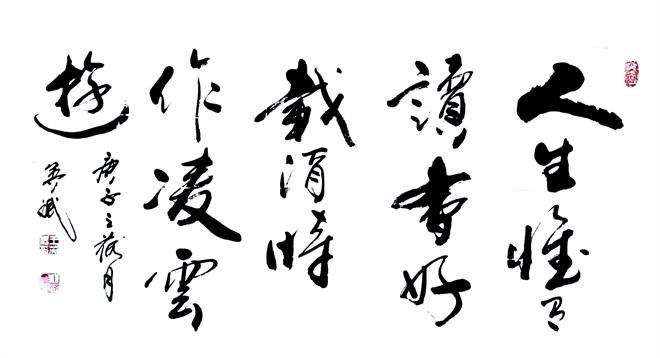 人生惟有
讀書好
載酒時
作凌雲
遊
庚子之月